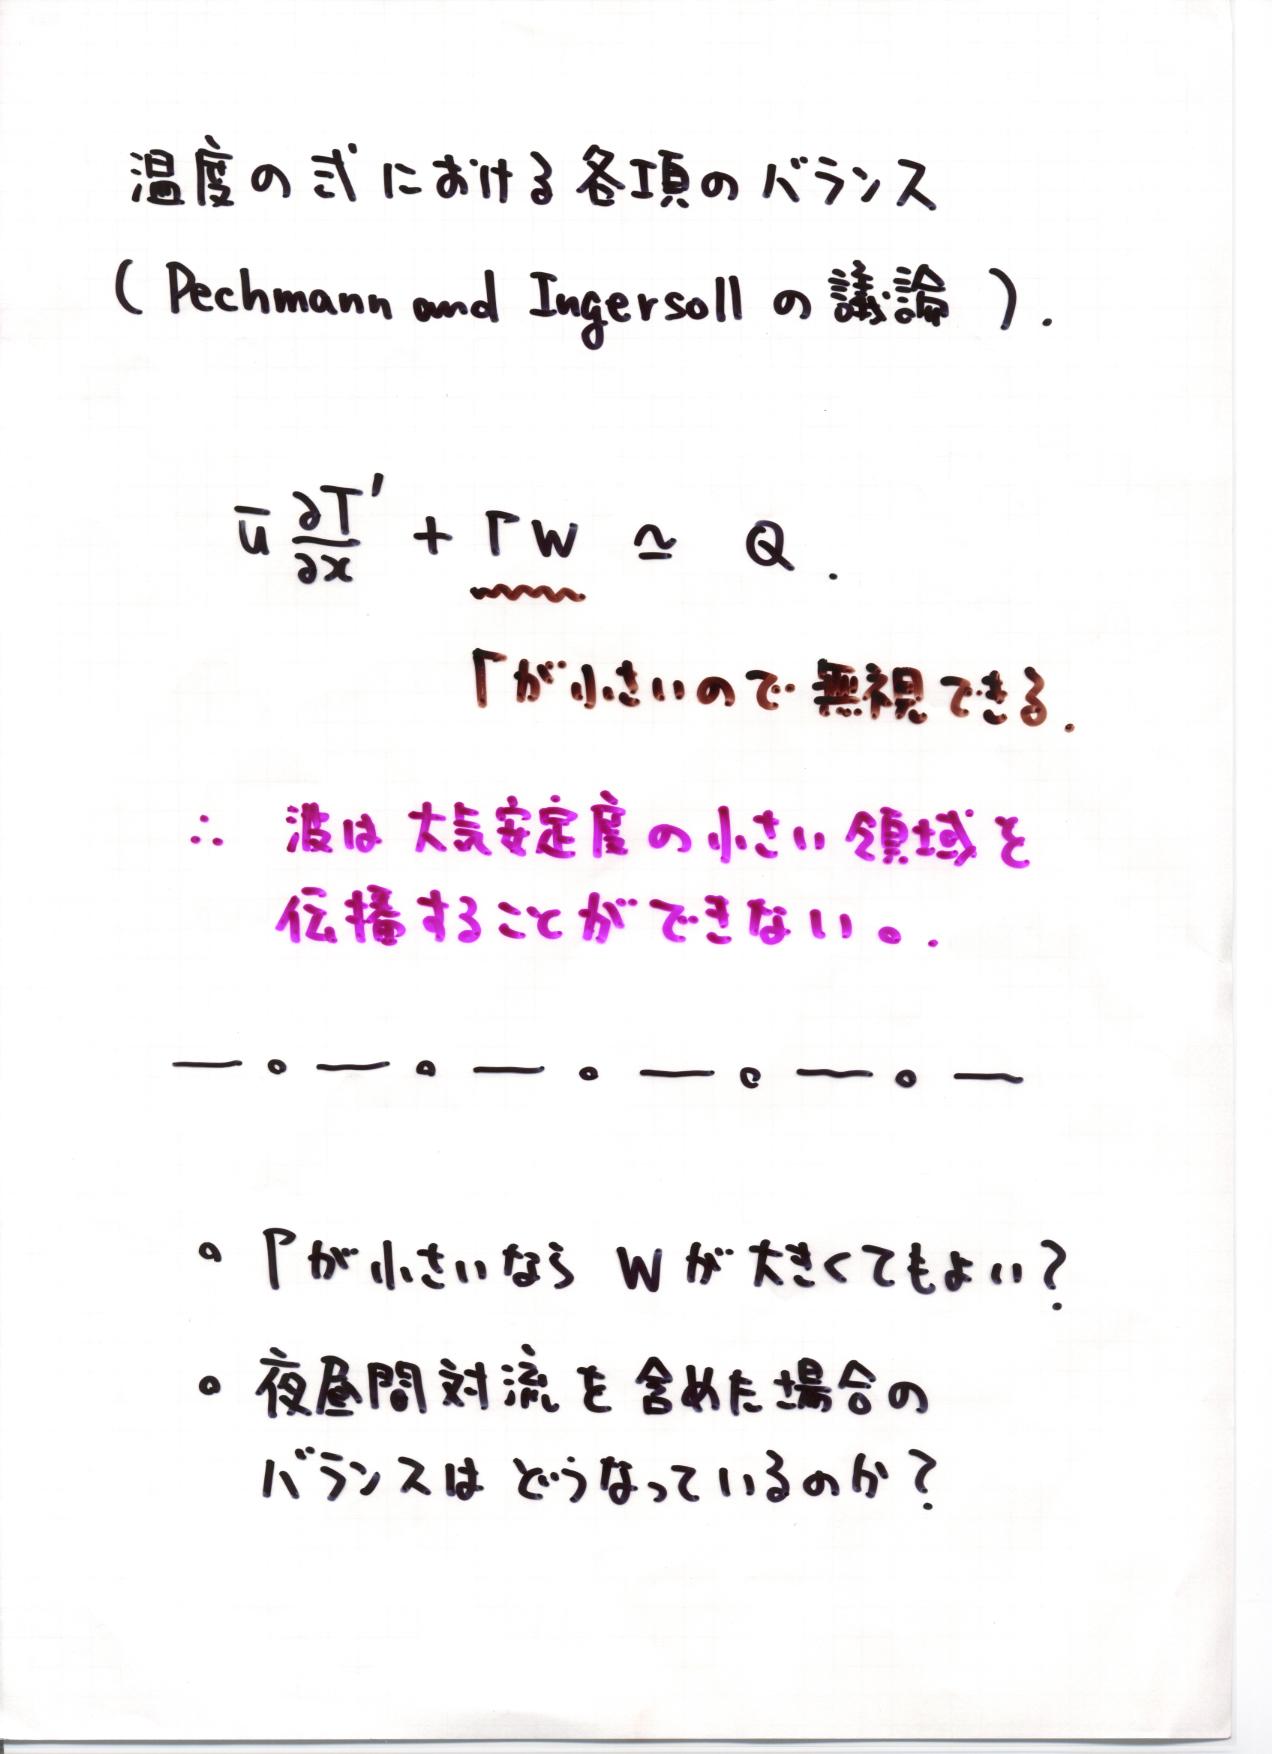 温度の式における各項のバランス
( Pechmann and Ingersoll の議論 ).
ū ∂T′/∂x + Γw ≃ Q.
Γが小さいので無視できる.
∴ 波は大気安定度の小さい領域を
伝播することができない。.
— 。— 。— 。— 。— 。—
。Γが小さいなら wが大きくてもよい?
。夜昼間対流を含めた場合の
バランスは どうなっているのか?